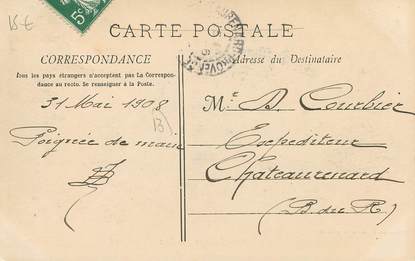 15 €
5c
CARTE POSTALE
CORRESPONDANCE
Tous les pays étrangers n'acceptent pas La Correspon-
dance au recto. Se renseigner à la Poste.
Adresse du Destinataire
31 Mai 1908
Poignée de main
Mr D Courbier
Expéditeur
Chateaurenard
(B. du R)